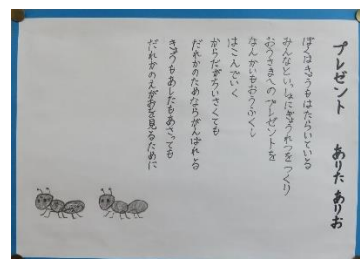 プレゼント　ありた ありお
ぼくはきょうもはたらいている
みんなといっしょにぎょうれつをつくり
おうさまへのプレゼントを
なんかいもおうふくし
はこんでいく
からだがちいさくても
だれかのためならがんばれる
きょうもあしたもあさっても
だれかのえがおを見るために